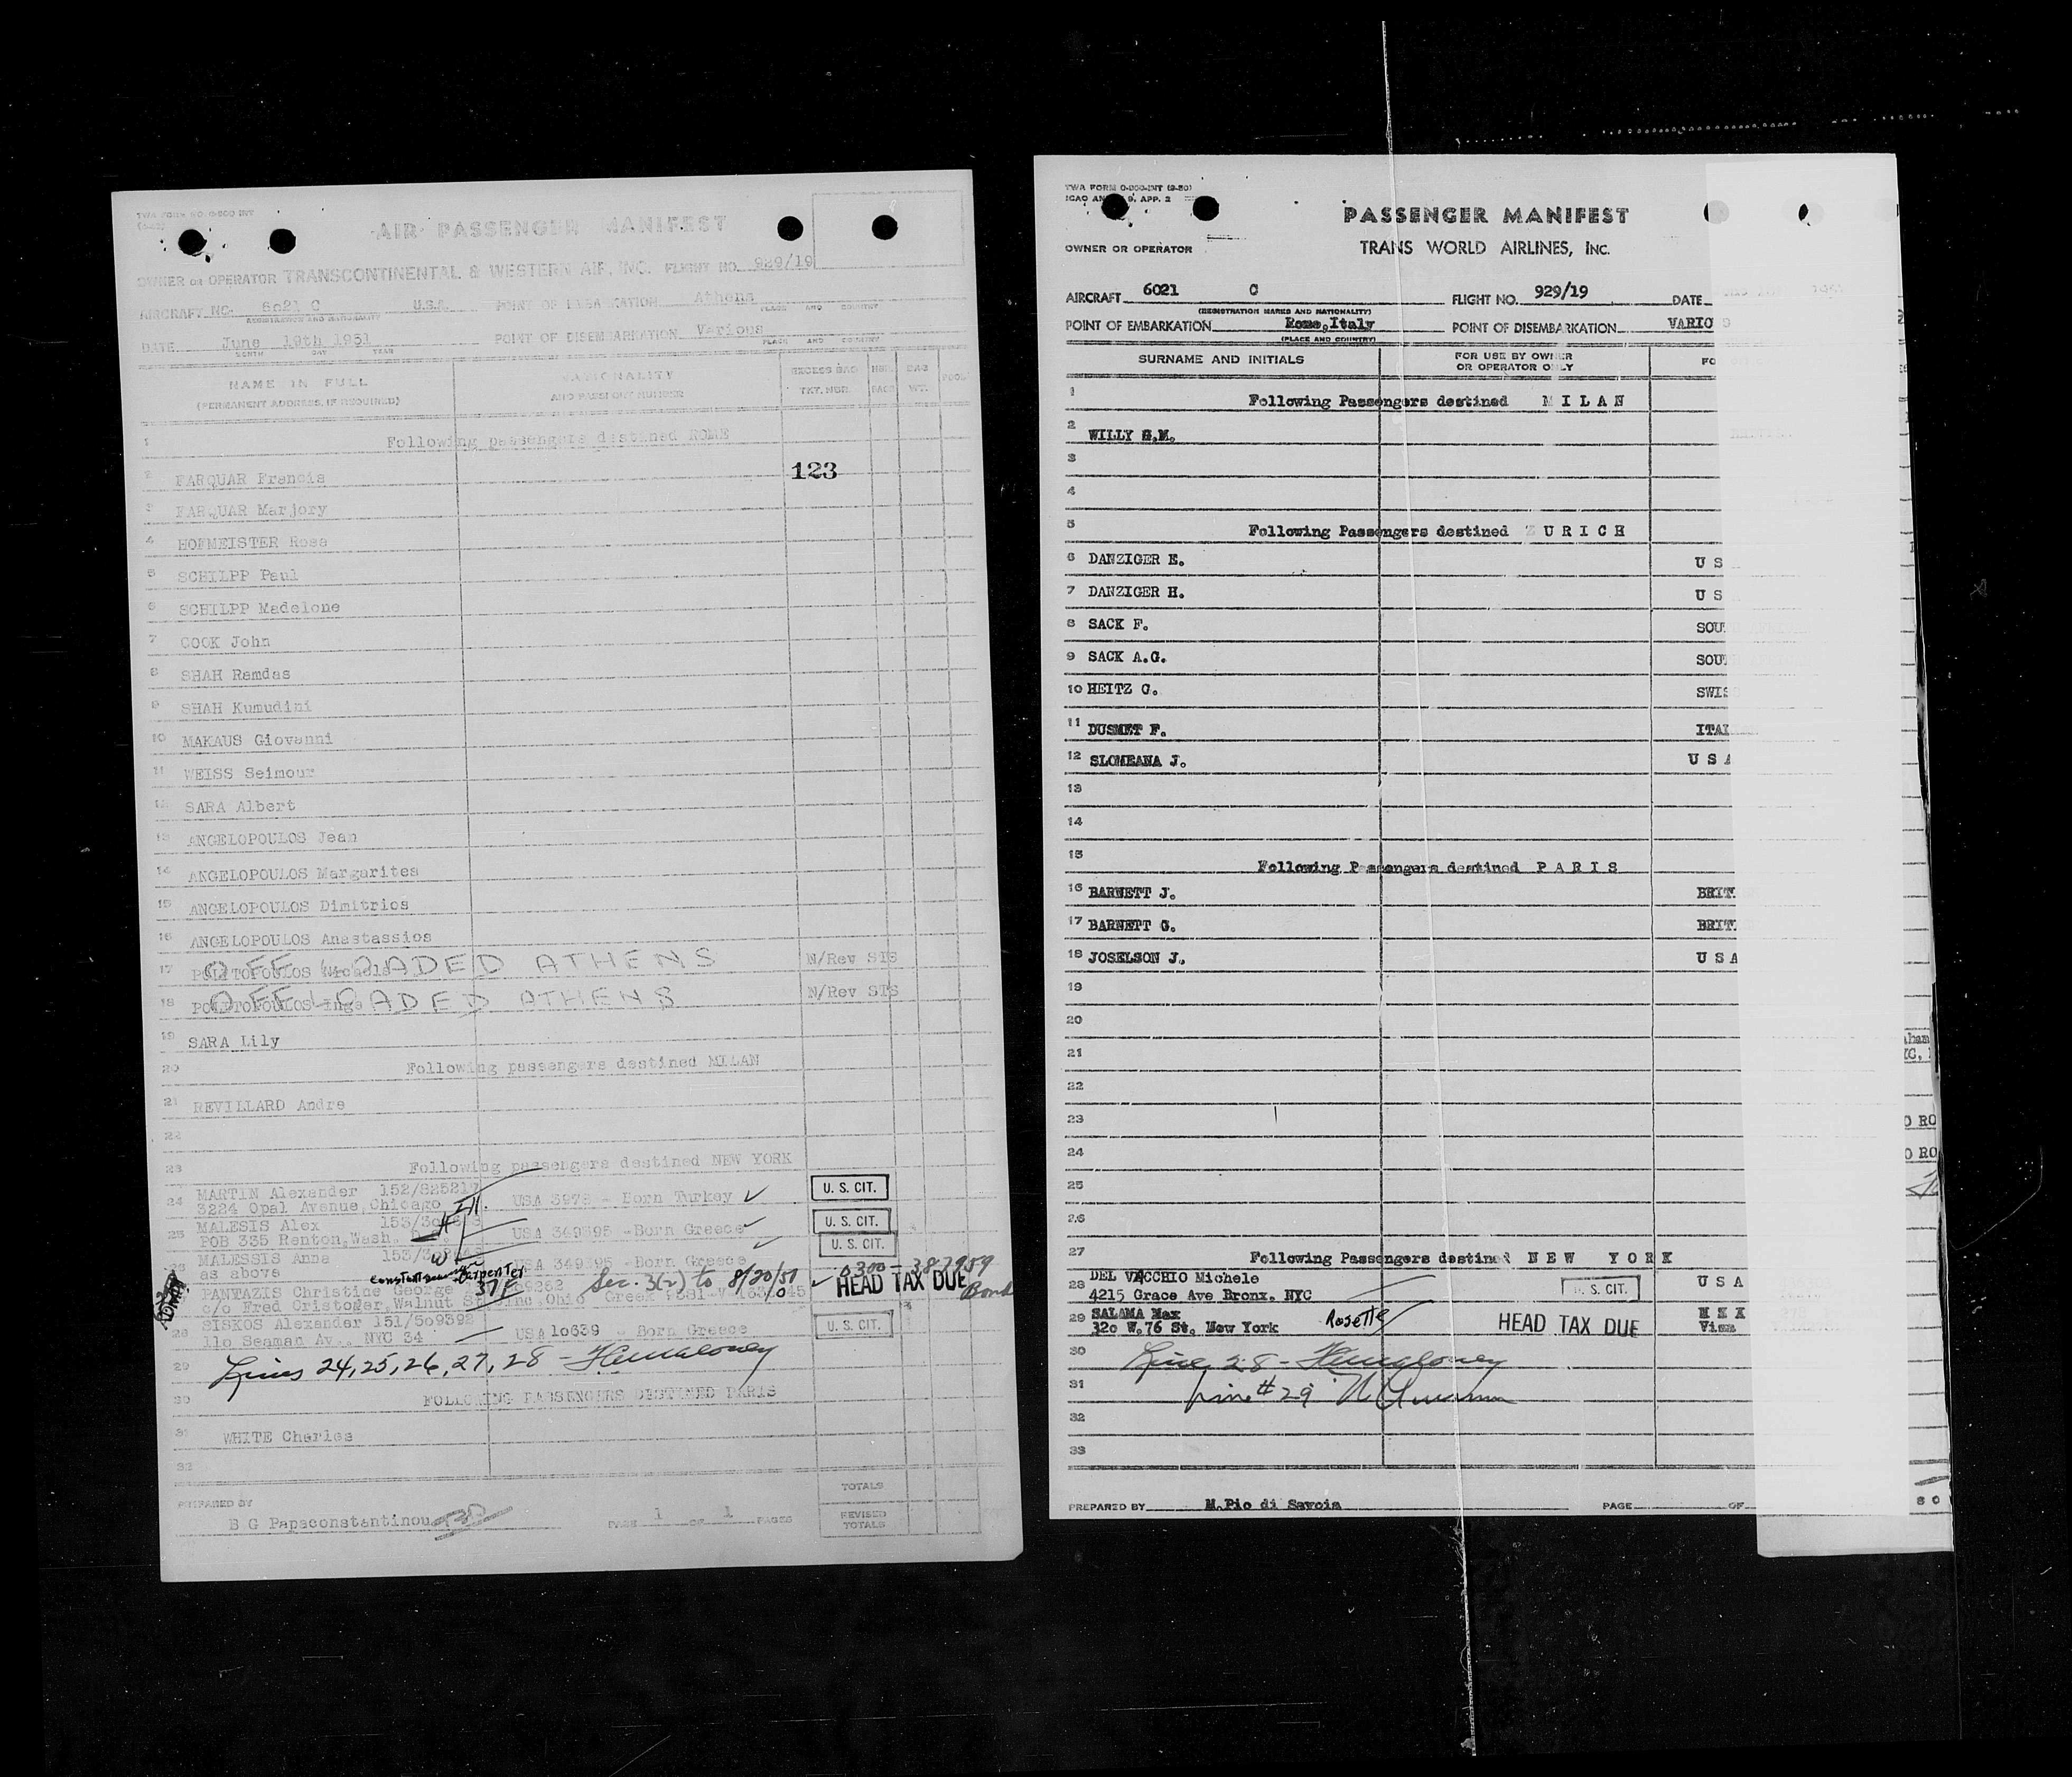 TWA FORM NO. O-800 INT
AIR PASSENGER MANIFEST
OWNER OR OPERATOR TRANSCONTINENTAL & WESTERN AIR, INC. FLIGHT NO. 929/19
AIRCRAFT NO. 6021 C U.S.A. POINT OF EMBARKATION Athens
REGISTRATION AND NATIONALITY PLACE AND COUNTRY
DATE June 19th 1951 POINT OF DISEMBARKATION Various
MONTH DAY YEAR PLACE AND COUNTRY
NAME IN FULL NATIONALITY EXCESS BAG BAG
(PERMANENT ADDRESS, IF REQUIRED) AND PASSPORT NUMBER TKT. NBR. BAGS WT. POOL
1 Following passengers destined ROME
2 FARQUAR Francis 123
3 FARQUAR Marjory
4 HOFMEISTER Rosa
5 SCHILPP Paul
6 SCHILPP Madelone
7 COOK John
8 SHAH Ramdas
9 SHAH Kumudini
10 MAKAUS Giovanni
11 WEISS Seimour
12 SARA Albert
13 ANGELOPOULOS Jean
14 ANGELOPOULOS Margarites
15 ANGELOPOULOS Dimitrios
16 ANGELOPOULOS Anastassios
17 POLYTOPOULOS OFFLOADED ATHENS N/Rev SIS
18 POLYTOPOULOS Inge OFFLOADED ATHENS N/Rev SIS
19 SARA Lily
20 Following passengers destined MILAN
21 REVILLARD Andre
22
23 Following passengers destined NEW YORK
24 MARTIN Alexander 152/825217 USA 3978 - Born Turkey ✓ U. S. CIT.
3224 Opal Avenue, Chicago Ill.
25 MALESIS Alex USA 349395 -Born Greece ✓ U. S. CIT.
POB 335 Renton, Wash.
26 MALESSIS Anna USA 349395 -Born Greece ✓ U. S. CIT.
as above
Carpenter 0300 - 387959
27 PANTAZIS Christine George 37 F Sec. 3(2) to 8/20/51 ✓ HEAD TAX DUE Bond
c/o Fred Cristofer, Walnut St. Cinc, Ohio Greek
ADMIT
28 SISKOS Alexander 151/509392 USA 10639 - Born Greece U. S. CIT.
110 Seaman Av., NYC 34
29 Lines 24, 25, 26, 27, 28 -
30 FOLLOWING PASSENGERS DESTINED PARIS
31 WHITE Charles
32
TOTALS
PREPARED BY B G Papaconstantinou PAGE 1 OF 1 PAGES REVISED TOTALS
TWA FORM O-800-INT (9-50)
ICAO ANNEX 9, APP. 2
PASSENGER MANIFEST
OWNER OR OPERATOR TRANS WORLD AIRLINES, INC.
AIRCRAFT 6021 C FLIGHT NO. 929/19 DATE
(REGISTRATION MARKS AND NATIONALITY)
POINT OF EMBARKATION Rome, Italy POINT OF DISEMBARKATION VARIO
(PLACE AND COUNTRY)
SURNAME AND INITIALS FOR USE BY OWNER OR OPERATOR ONLY FO
1 Following Passengers destined M I L A N
2 WILLY S.M.
3
4
5 Following Passengers destined Z U R I C H
6 DANZIGER E. U S
7 DANZIGER H. U S
8 SACK F. SOU
9 SACK A.G. SOU
10 HEITZ G. SWIS
11 DUSMET F. ITAL
12 SLOMEANA J. U S A
13
14
15 Following Passengers destined P A R I S
16 BARNETT J. BRIT.
17 BARNETT G. BRIT.
18 JOSELSON J. U S A
19
20
21
22
23
24
25
26
27 Following Passengers destined N E W Y O R K
28 DEL VACCHIO Michele U. S. CIT. U S A
4215 Grace Ave Bronx. NYC
29 SALAMA Max Rosette HEAD TAX DUE
320 W.76 St. New York Visa
30 Line 28 -
31 Line # 29
32
33
PREPARED BY M.Pio di Savoia PAGE OF